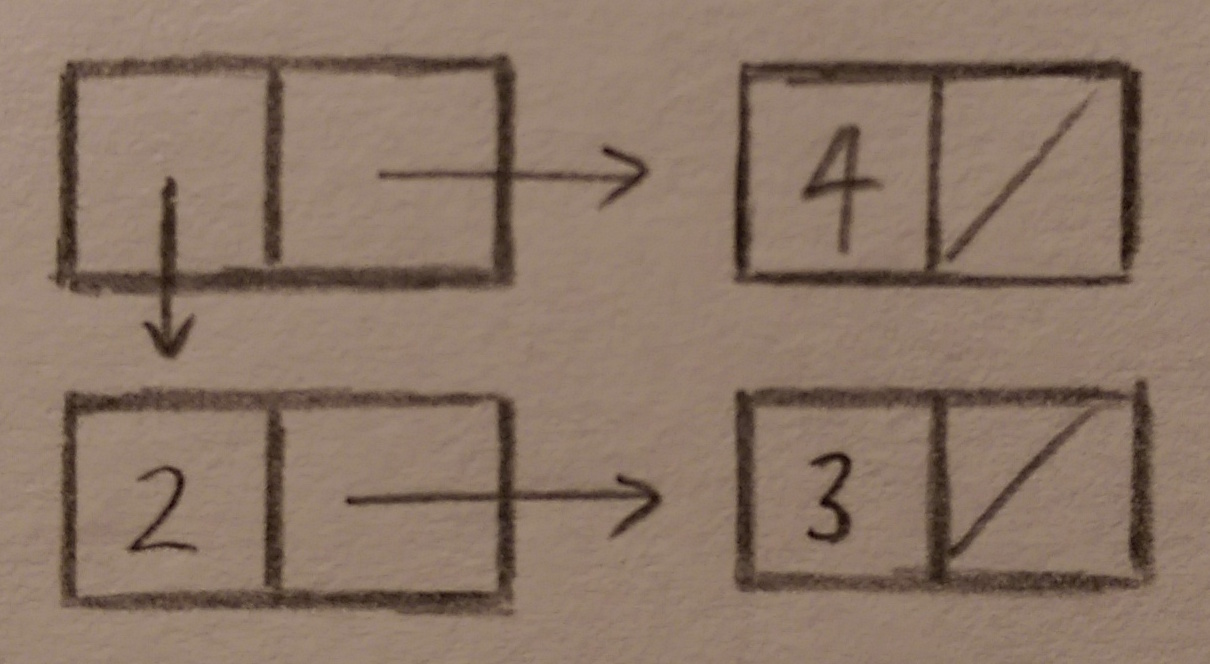 4
2 3